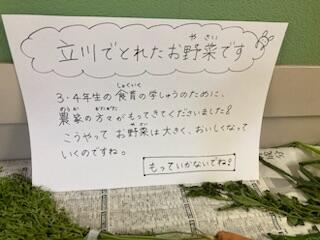 立川でとれたお野菜です
3・4年生の食育の学しゅうのために、
農家の方々がもってきてくださいました!
こうやって お野菜は大きく、おいしくなって
いくのですね。
もっていかないでね?